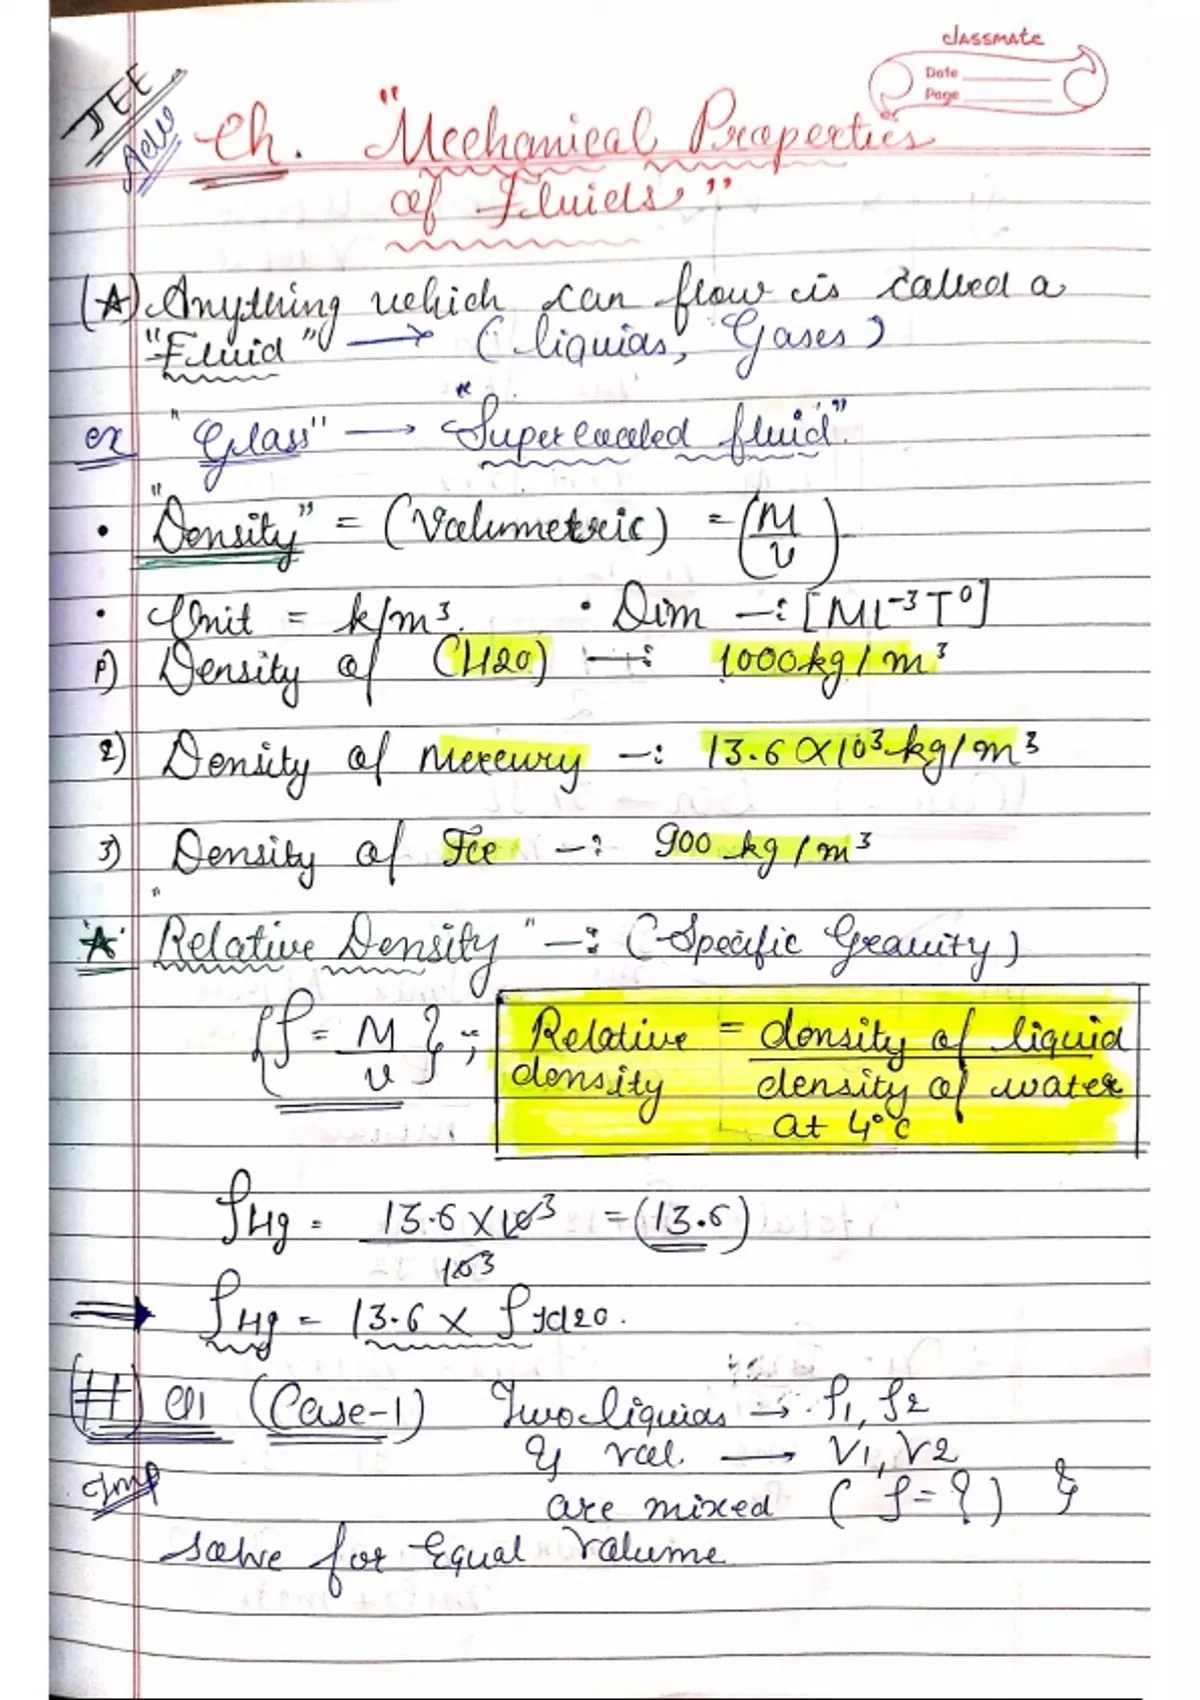 classmate
Date
Page
JEE
Adv
Ch. "Mechanical Properties
of Fluids"
(A) Anything which can flow is called a
"Fluid" → (liquids, Gases)
ex "Glass" → "Supercooled fluid".
• "Density" = (Volumetric) = (M/V)
• Unit = k/m³. • Dim —: [ML⁻³T⁰]
1) Density of (H2O) —: 1000kg/m³
2) Density of Mercury —: 13.6 × 10³ kg/m³
3) Density of Ice —: 900 kg/m³
"A" "Relative Density" —: (Specific Gravity)
{ρ = M/V} ; Relative density = density of liquid / density of water at 4°C
ρHg = 13.6 × 10³ / 10³ = (13.6)
⇒ ρHg = 13.6 × ρH2O.
(#) Q1 (Case-1) Two liquids → ρ1, ρ2
& vol. → V1, V2
Imp are mixed (ρ=?) &
solve for Equal Volume